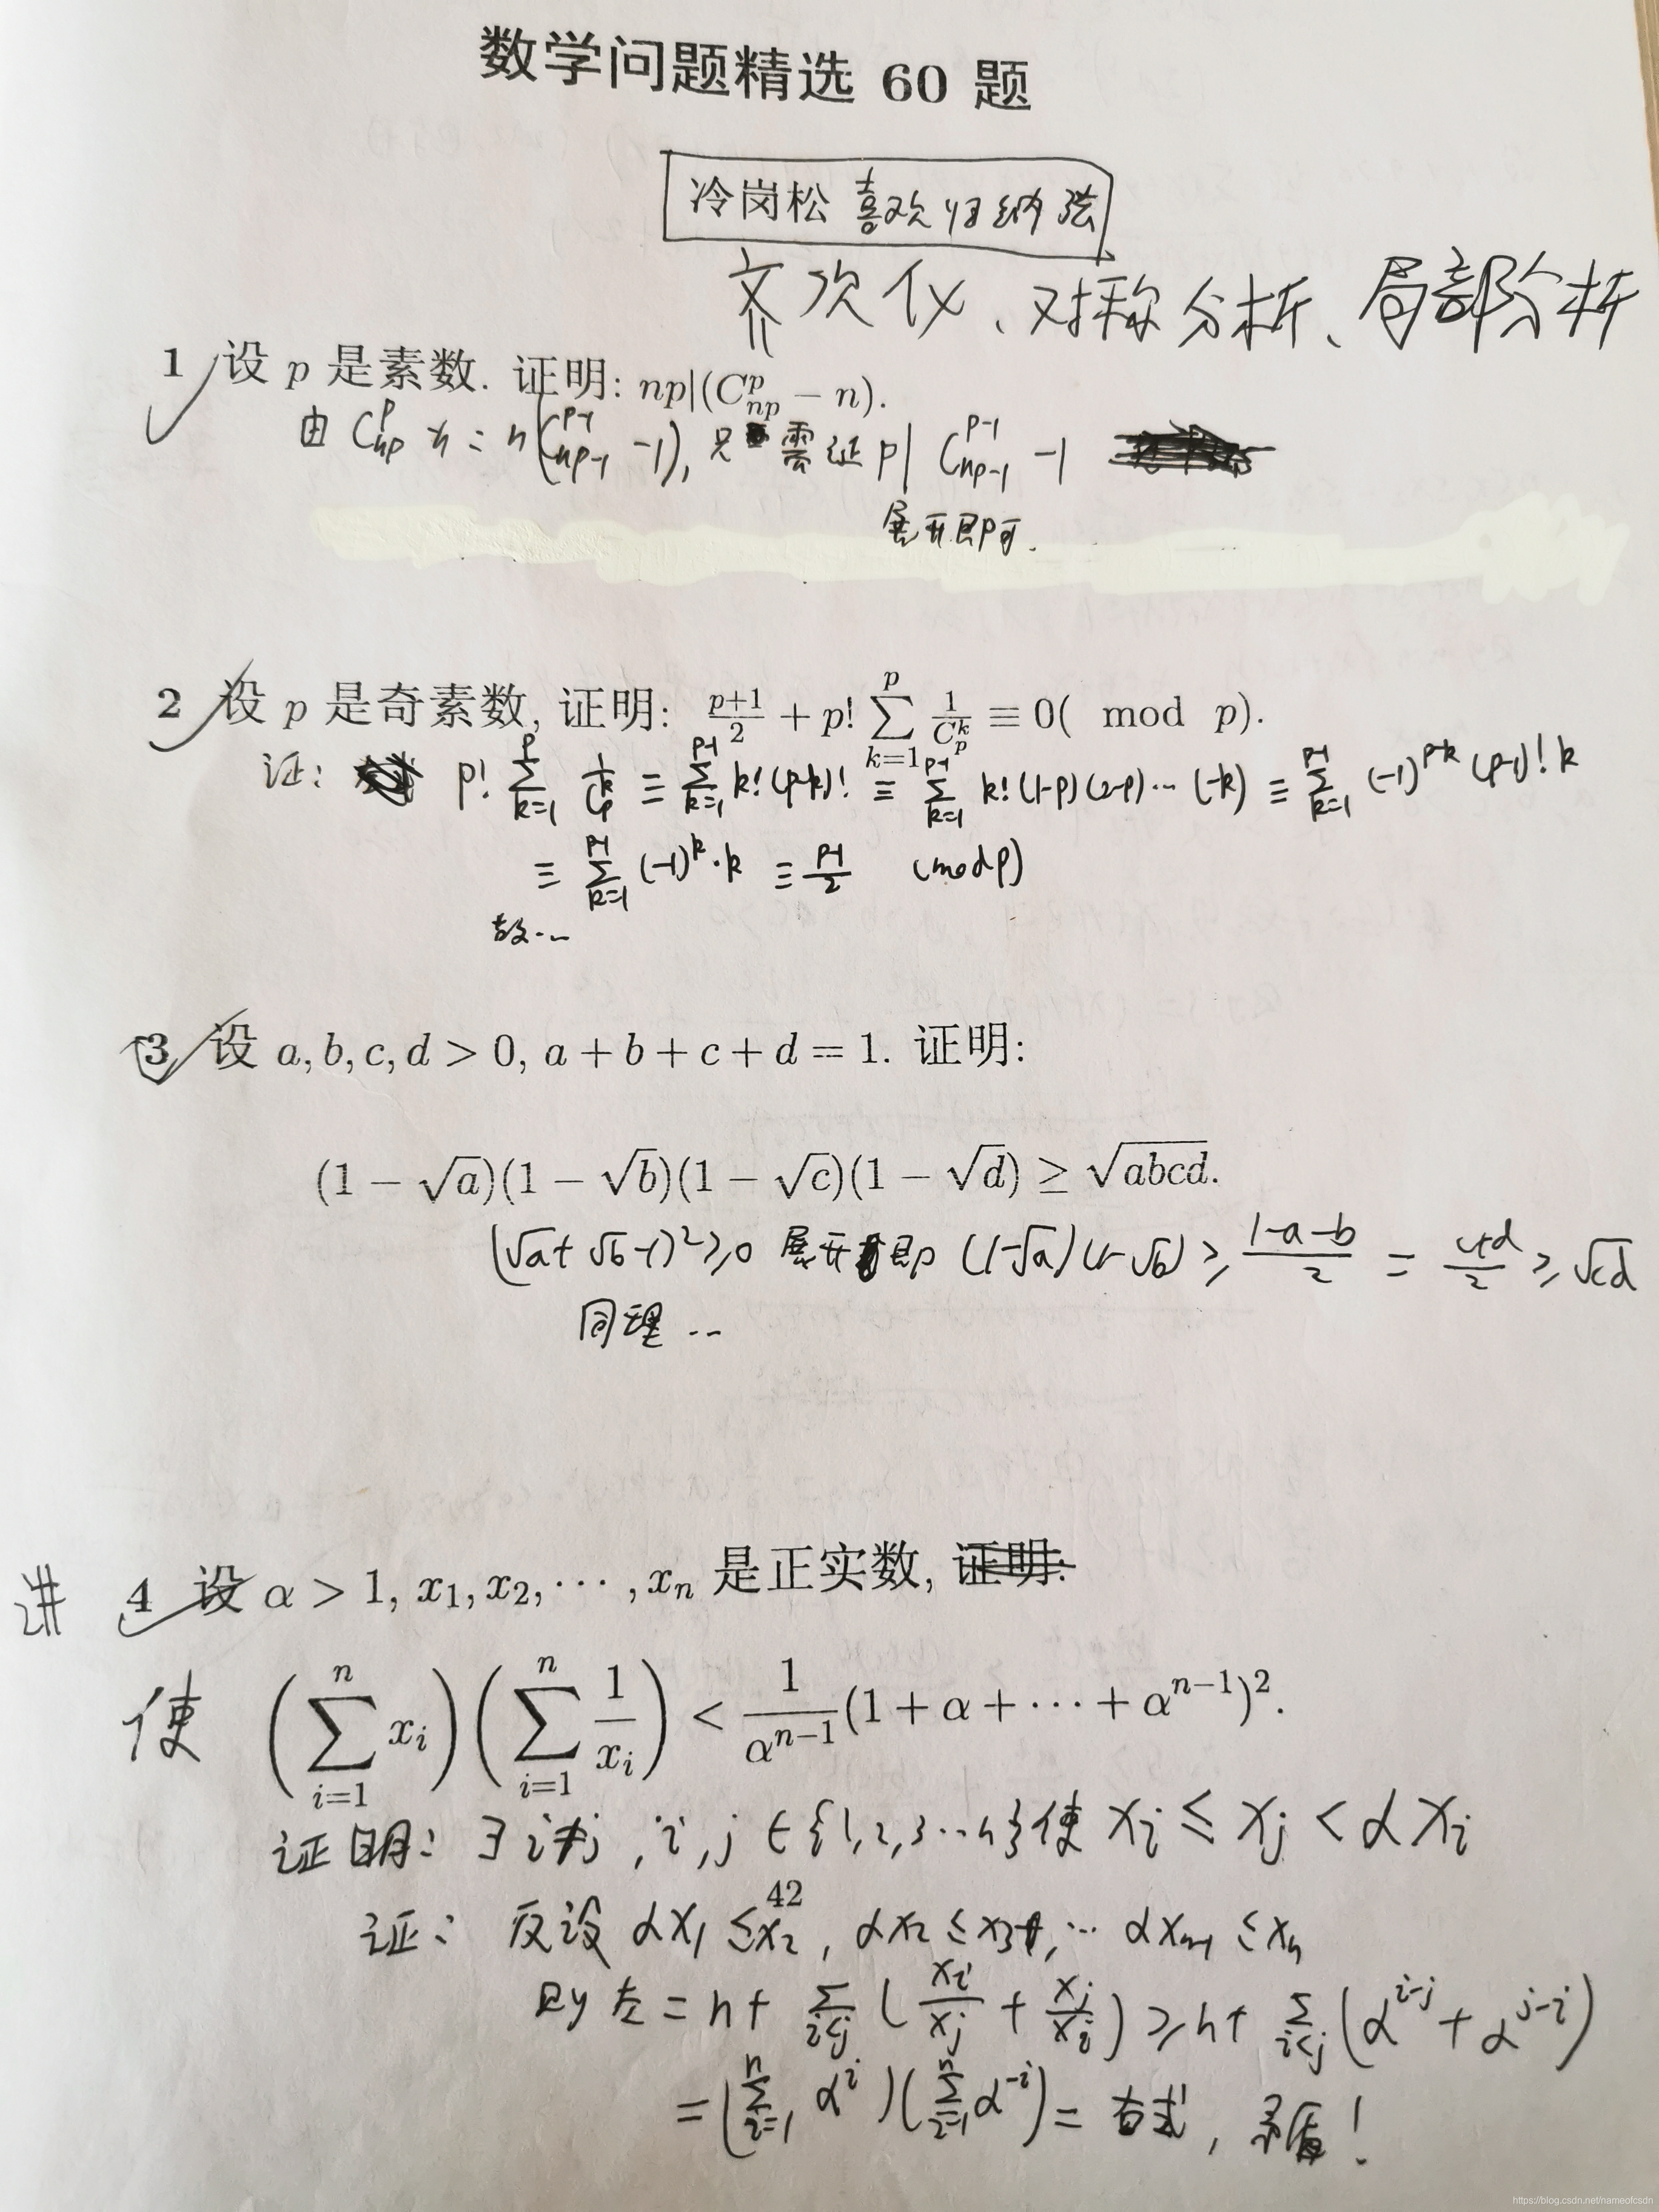 数学问题精选 60 题
冷岗松 喜欢归纳法
齐次化、对称分析、局部分析
1 设 p 是素数. 证明: np|(C_{np}^{p} − n).
由 C_{np}^{p} - n = n(C_{np-1}^{p-1} -1), 只需证 p | C_{np-1}^{p-1} -1
展开即可.
2 设 p 是奇素数, 证明: \frac{p+1}{2} + p! \sum_{k=1}^{p} \frac{1}{C_p^k} ≡ 0( mod p).
证: p! \sum_{k=1}^{p} \frac{1}{C_p^k} ≡ \sum_{k=1}^{p-1} k!(p-k)! ≡ \sum_{k=1}^{p-1} k!(1-p)(2-p)…(-k) ≡ \sum_{k=1}^{p-1} (-1)^{p-k}(p-1)! k
≡ \sum_{k=1}^{p-1} (-1)^k·k ≡ \frac{p-1}{2} (mod p)
故…
3 设 a, b, c, d > 0, a + b + c + d = 1. 证明:
(1 − √a)(1 − √b)(1 − √c)(1 − √d) ≥ √abcd.
(√a + √b -1)² ≥ 0 展开即 (1-√a)(1-√b) ≥ \frac{1-a-b}{2} = \frac{c+d}{2} ≥ √cd
同理 …
讲 4 设 α > 1, x_1, x_2, ⋯ , x_n 是正实数, 证明:
使 (\sum_{i=1}^{n} x_i)(\sum_{i=1}^{n} \frac{1}{x_i}) < \frac{1}{α^{n−1}}(1 + α + ⋯ + α^{n−1})^2.
证明: ∃ i≠j , i, j ∈ {1, 2, 3…n} 使 x_i ≤ x_j < αx_i
42
证: 反设 αx_1 ≤ x_2, αx_2 ≤ x_3, … αx_{n-1} ≤ x_n
则左 = n + \sum_{i<j} (\frac{x_i}{x_j} + \frac{x_j}{x_i}) ≥ n + \sum_{i<j} (α^{i-j} + α^{j-i})
= (\sum_{i=1}^{n} α^i)(\sum_{i=1}^{n} α^{-i}) = 右式, 矛盾!
https://blog.csdn.net/nameofcsdn